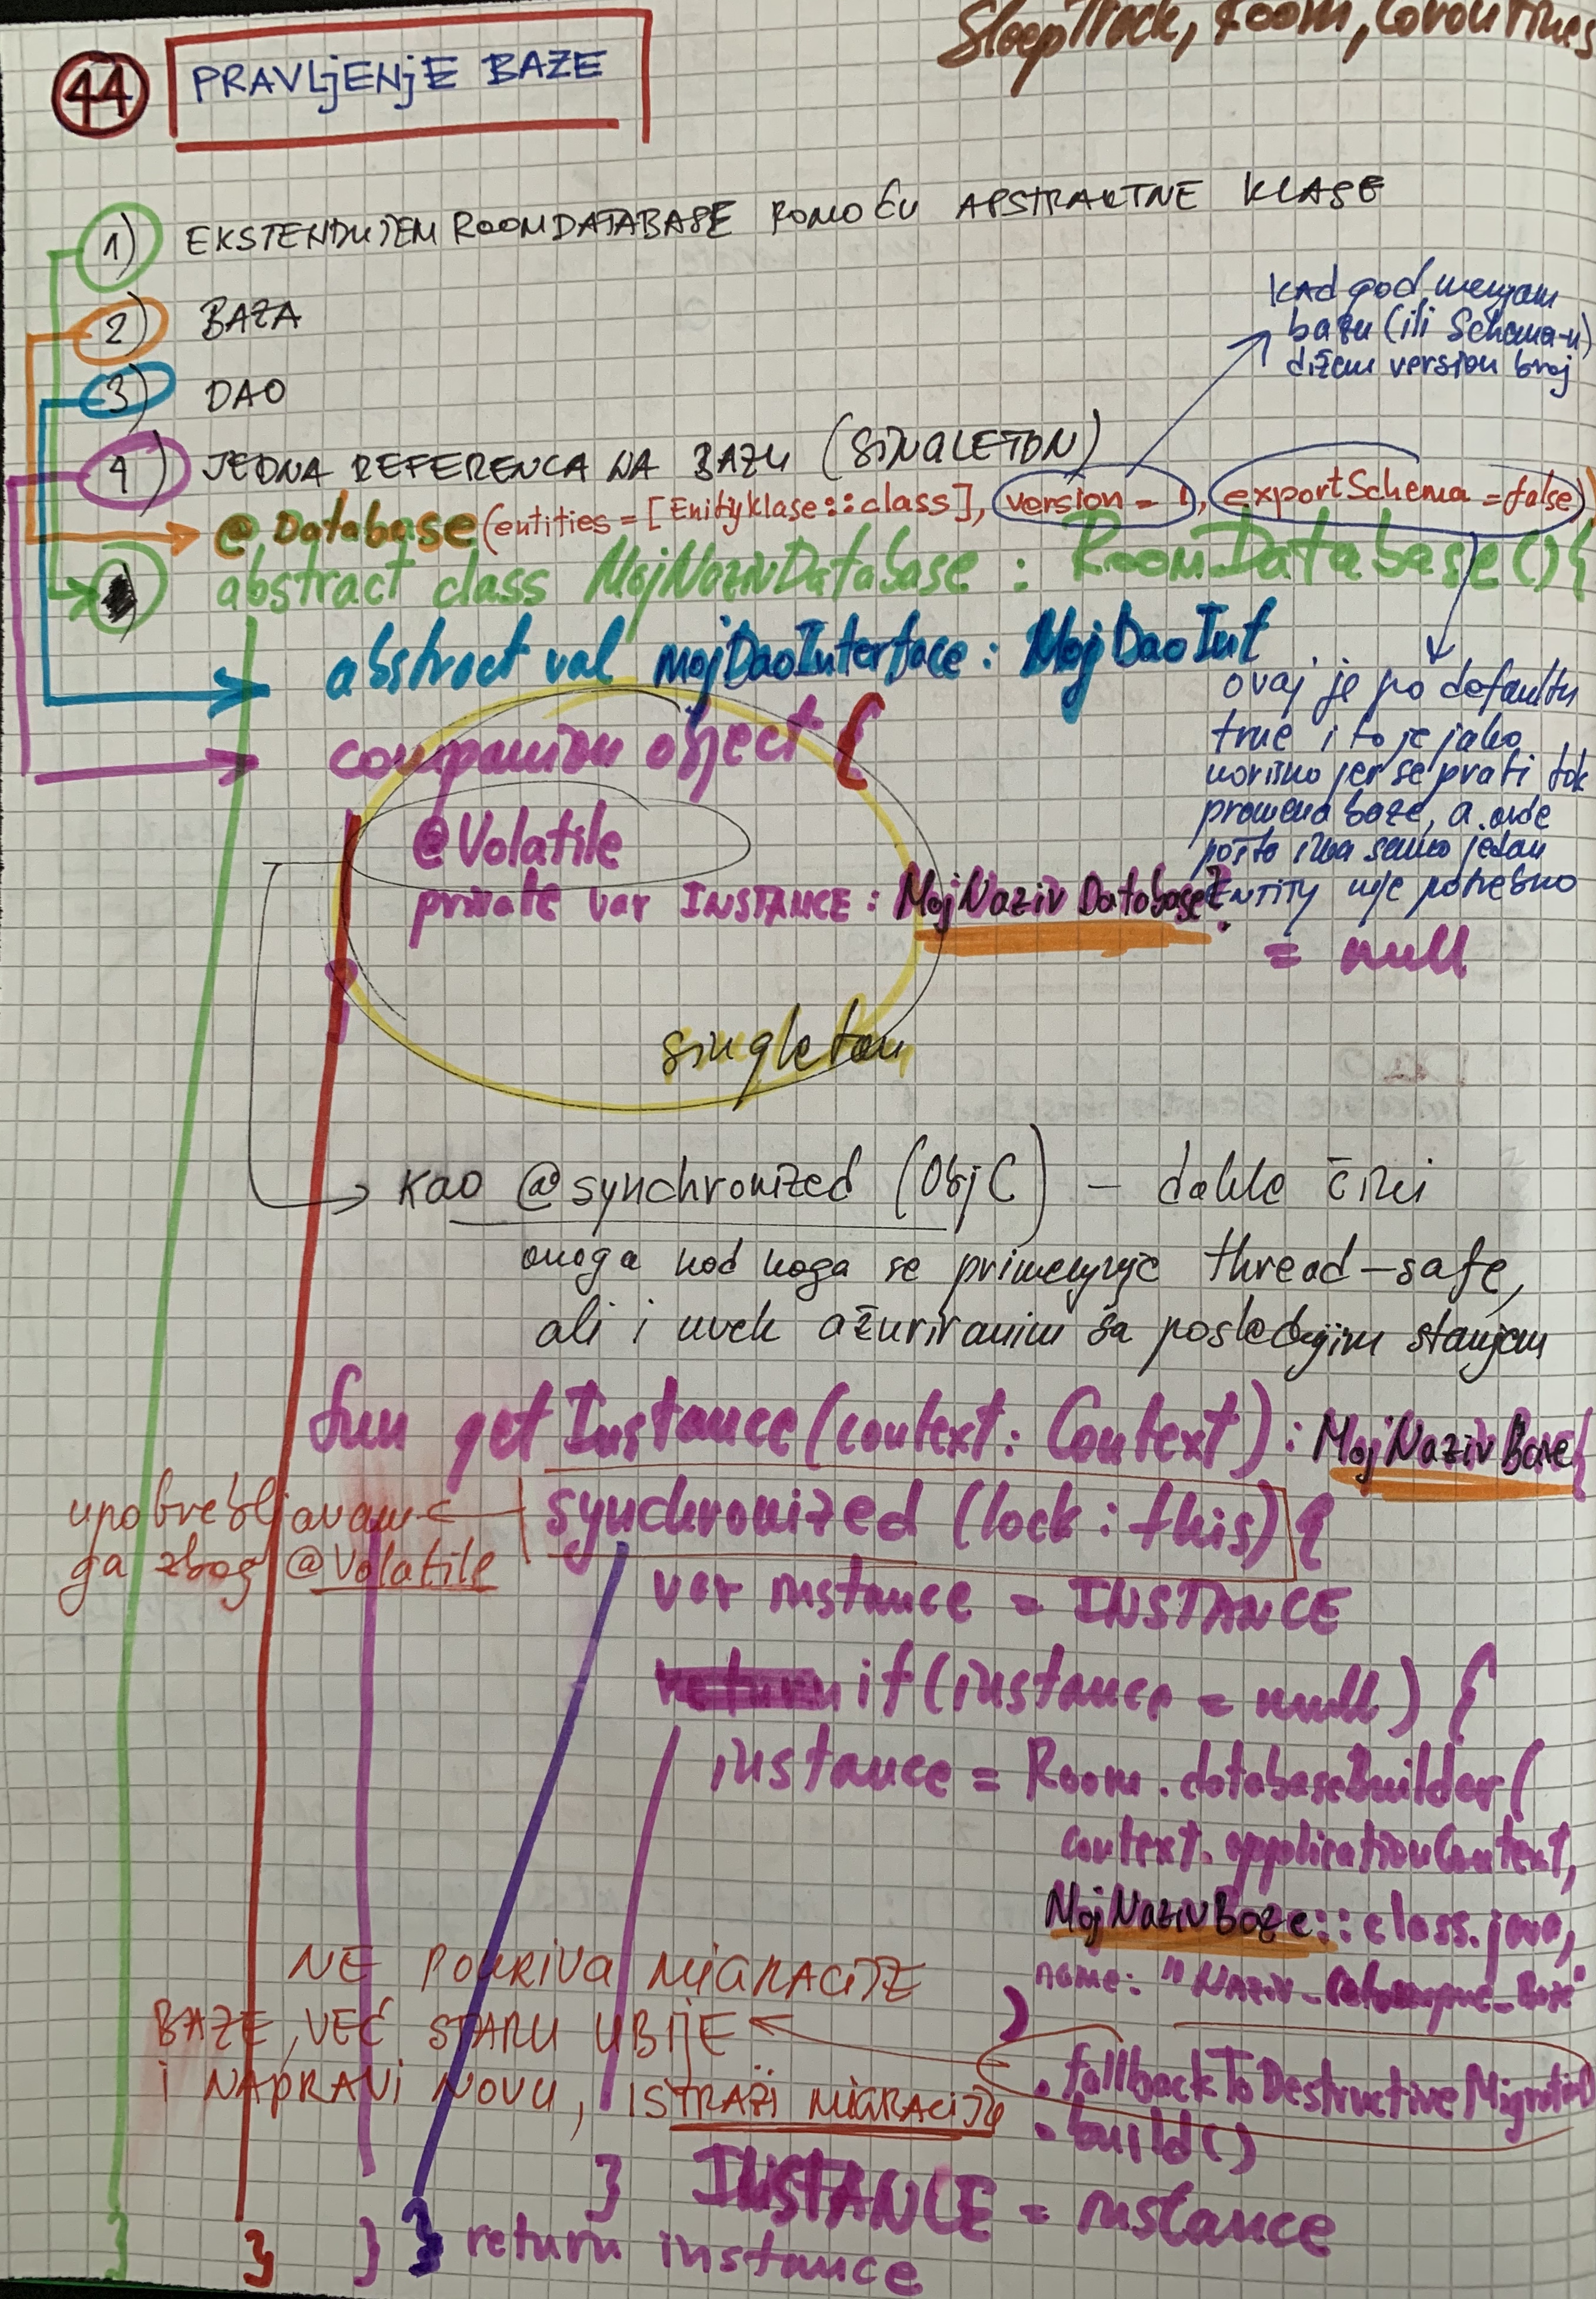 SleepTrack, Room, Coroutines
44 PRAVLjENjE BAZE
1) EKSTENDUJEM ROOMDATABASE POMOĆU APSTRAKTNE KLASE
2) BAZA
3) DAO
4) JEDNA REFERENCA NA BAZU (SINGLETON)
kad god menjam
bazu (ili Schema-u)
dižem version broj
@Database(entities = [EnityKlase::class], version = 1, exportSchema = false)
abstract class MojNazivDatabase : RoomDatabase() {
abstract val mojDaoInterface : MojDaoInt
ovaj je po defaultu
true i to je jako
korisno jer se prati tok
promena baze, a ovde
pošto ima samo jedan
ENTITY nije potrebno
companion object {
@Volatile
private var INSTANCE : MojNazivDatabase?
= null
singleton
kao @synchronized (Obj C) – dakle čini
onoga kod koga se primenjuje thread-safe,
ali i uvek ažuriranim sa poslednjim stanjem
fun getInstance(context: Context) : MojNazivBaze {
upotrebljavam
ga zbog @Volatile
synchronized (lock : this) {
var instance = INSTANCE
if (instance = null) {
instance = Room.databaseBuilder(
context.applicationContext,
MojNazivBaze::class.java,
name: "Naziv_
)
.fallbackToDestructiveMigration
.build()
NE POKRIVA MIGRACIJE
BAZE, VEĆ STARU UBIJE
I NAPRAVI NOVU, ISTRAŽI MIGRACIJE
INSTANCE = instance
}
return instance
}
}
}
}